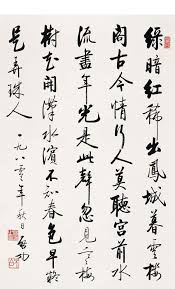 綠暗紅稀出鳳城暮雲樓
閣古今情行人莫聽宮前水
流盡年光是此聲忽見寒梅
樹花開漢水濱不知春色早疑
是弄珠人 一九八 年秋日 啟功